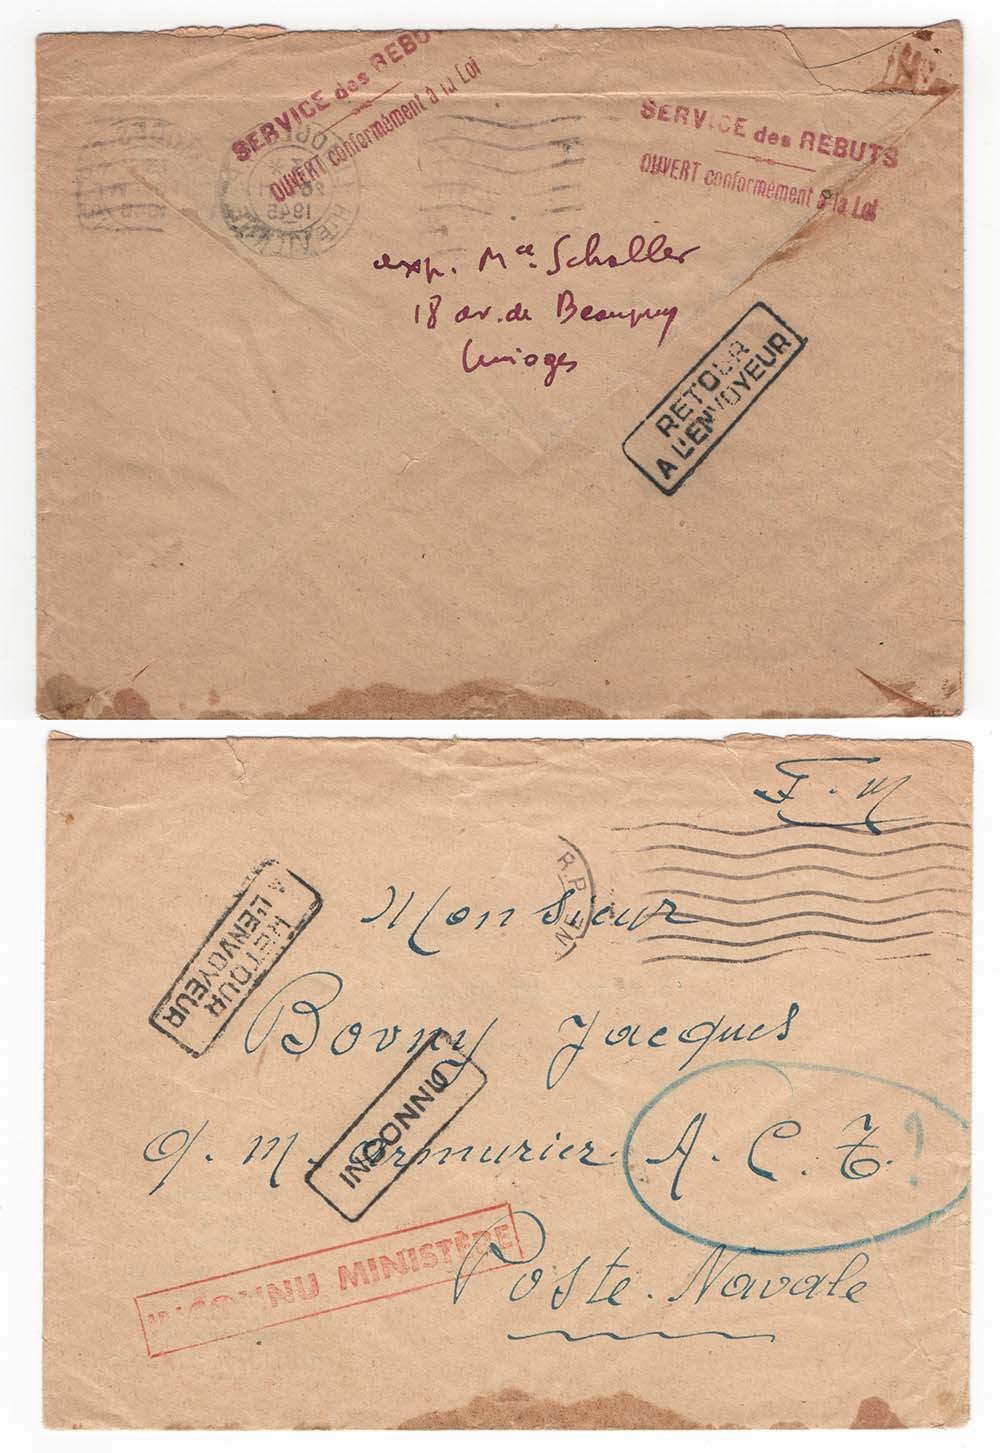 SERVICE des REBU
OUVERT conformément à la Loi
SERVICE des REBUTS
OUVERT conformément à la Loi
1945
exp. Mce. Schaller
18 av. de
Limoges
RETOUR
A L'ENVOYEUR
F. M
R.P.
NE
RETOUR
A L'ENVOYEUR
Monsieur
Bovny Jacques
INCONNU
q. m. armurier. A. C. T. ?
INCONNU MINISTÈRE
Poste. Navale